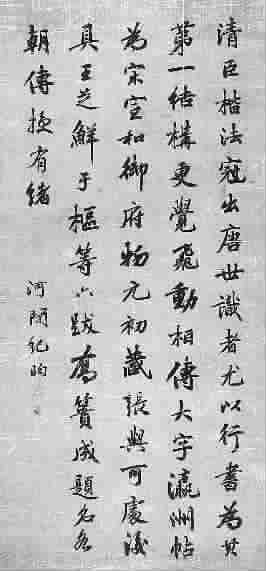 清臣楷法冠出唐世識者尤以行書為其
第一結構更覺飛動相傳大字瀛州帖
為宋宣和御府物元初藏張與可處後
具王芝鮮于樞等六跋喬簣成題名
朝傳授有緒
河間紀昀